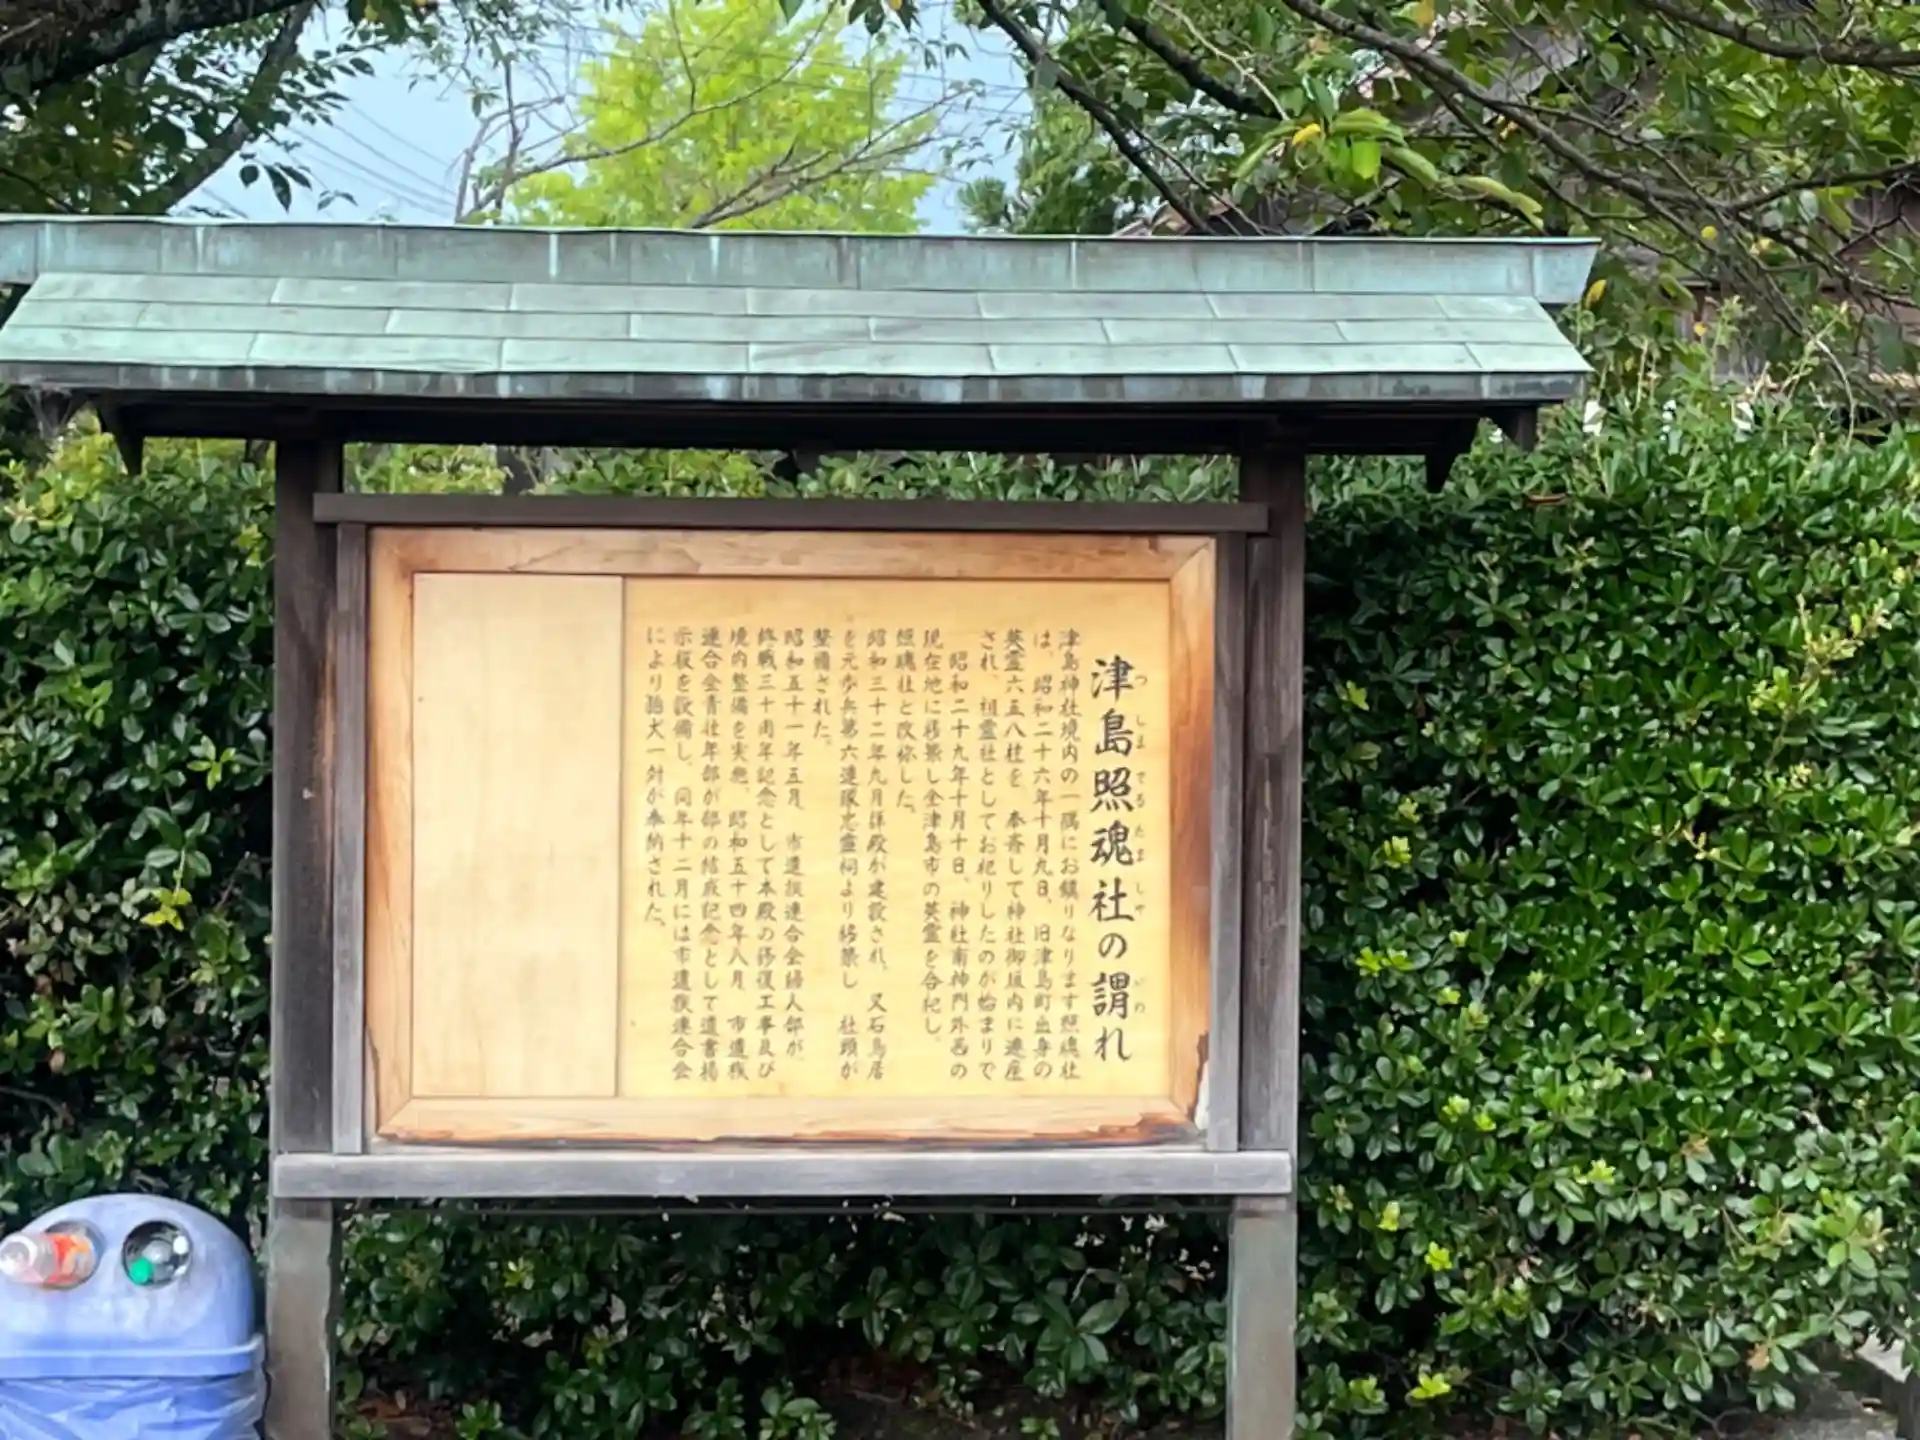 津島照魂社の謂れ
つしまてるたましゃ いわ
津島神社境内の一隅にお鎮りなります照魂社
は、昭和二十六年十月九日、旧津島町出身の
英霊六五八柱を 奉斎して神社御垣内に遷座
され、祖霊社としてお祀りしたのが始まりで
昭和二十九年十月十日、神社南神門外西の
現在地に移築し全津島市の英霊を合祀し、
照魂社と改称した。
昭和三十二年九月拝殿が建設され、又石鳥居
を元歩兵第六連隊忠霊祠より移築し 社頭が
整備された。
昭和五十一年五月 市遺族連合会婦人部が、
終戦三十周年記念として本殿の修復工事及び
境内整備を実施、昭和五十四年八月 市遺族
連合会青壮年部が部の結成記念として遺書掲
示板を設備し、同年十二月には市遺族連合会
により狛犬一対が奉納された。